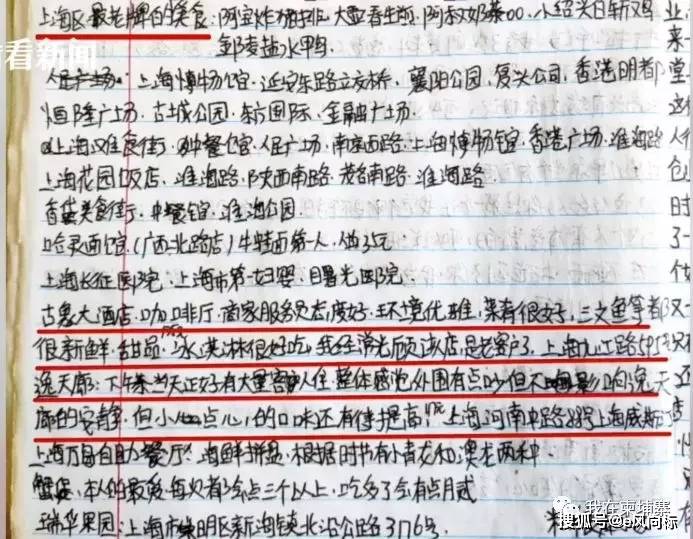 看看新闻
上海区最老牌的美食：阿宝炸猪排、大壶春生煎、阿叔奶茶00、小绍兴白斩鸡
邹凑盐水鸭
人民广场、上海博物馆、延安东路立交桥、襄阳公园、复兴公司、香港明都
恒隆广场、古城公园、东方国际、金融广场
上海淮食街、种餐馆、人民广场、南京西路、上海博物馆、香港广场、淮海路
上海花园饭店、淮海路、陕西南路、茂名南路、淮海路
香港美食街、中餐馆、淮海公园
哈灵面馆（广西北路店）牛特面第一人、做25元
上海长征医院、上海市第一妇婴、曙光医院
古象大酒店、咖啡厅、商家服务员态度好、环境优雅、菜肴很好、三文鱼等都
很新鲜、甜品、冰淇淋很好吃，我经常光顾该店，是老客户了、上海九江路595
逸天廊：下午茶当天正好有大量客人入住，整体感觉外围有点吵但不影响逸天
廊的安静、但小点心的口味还有待提高，上海河南中路 上海威斯
上海万自助餐厅：海鲜拼盘、根据时节有小青龙和澳龙两种
蟹 本人的最爱每次都会点三个以上、吃多了会有点月咸
瑞华果园：上海市崇明区新海镇北沿公路3176号
我在柬埔寨
搜狐号@风向标